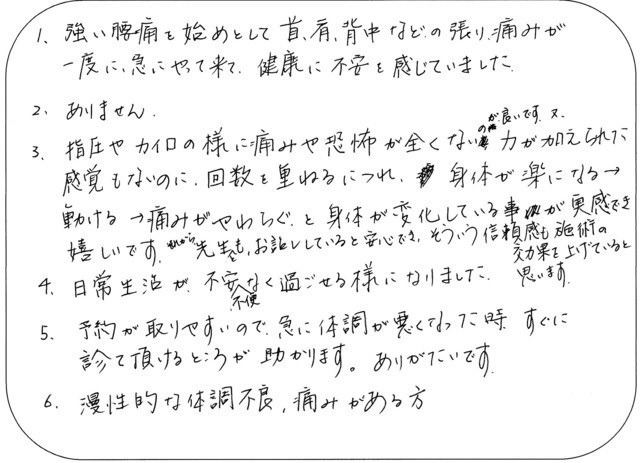 1. 強い腰痛を始めとして首、肩、背中などの張り、痛みが
一度に、急にやって来て、健康に不安を感じていました。
2. ありません。
3. 指圧やカイロの様に痛みや恐怖が全くないのが良いです。又、力が加えられた
感覚もないのに、回数を重ねるにつれ、身体が楽になる→
動ける→痛みがやわらぐ、と身体が変化している事が実感でき
嬉しいです。それから先生とも、お話していると安心でき、そういう信頼感も施術の
効果を上げていると
思います。
4. 日常生活が、不安なく過ごせる様になりました。
不便
5. 予約が取りやすいので、急に体調が悪くなった時、すぐに
診て頂けるところが助かります。ありがたいです。
6. 慢性的な体調不良、痛みがある方